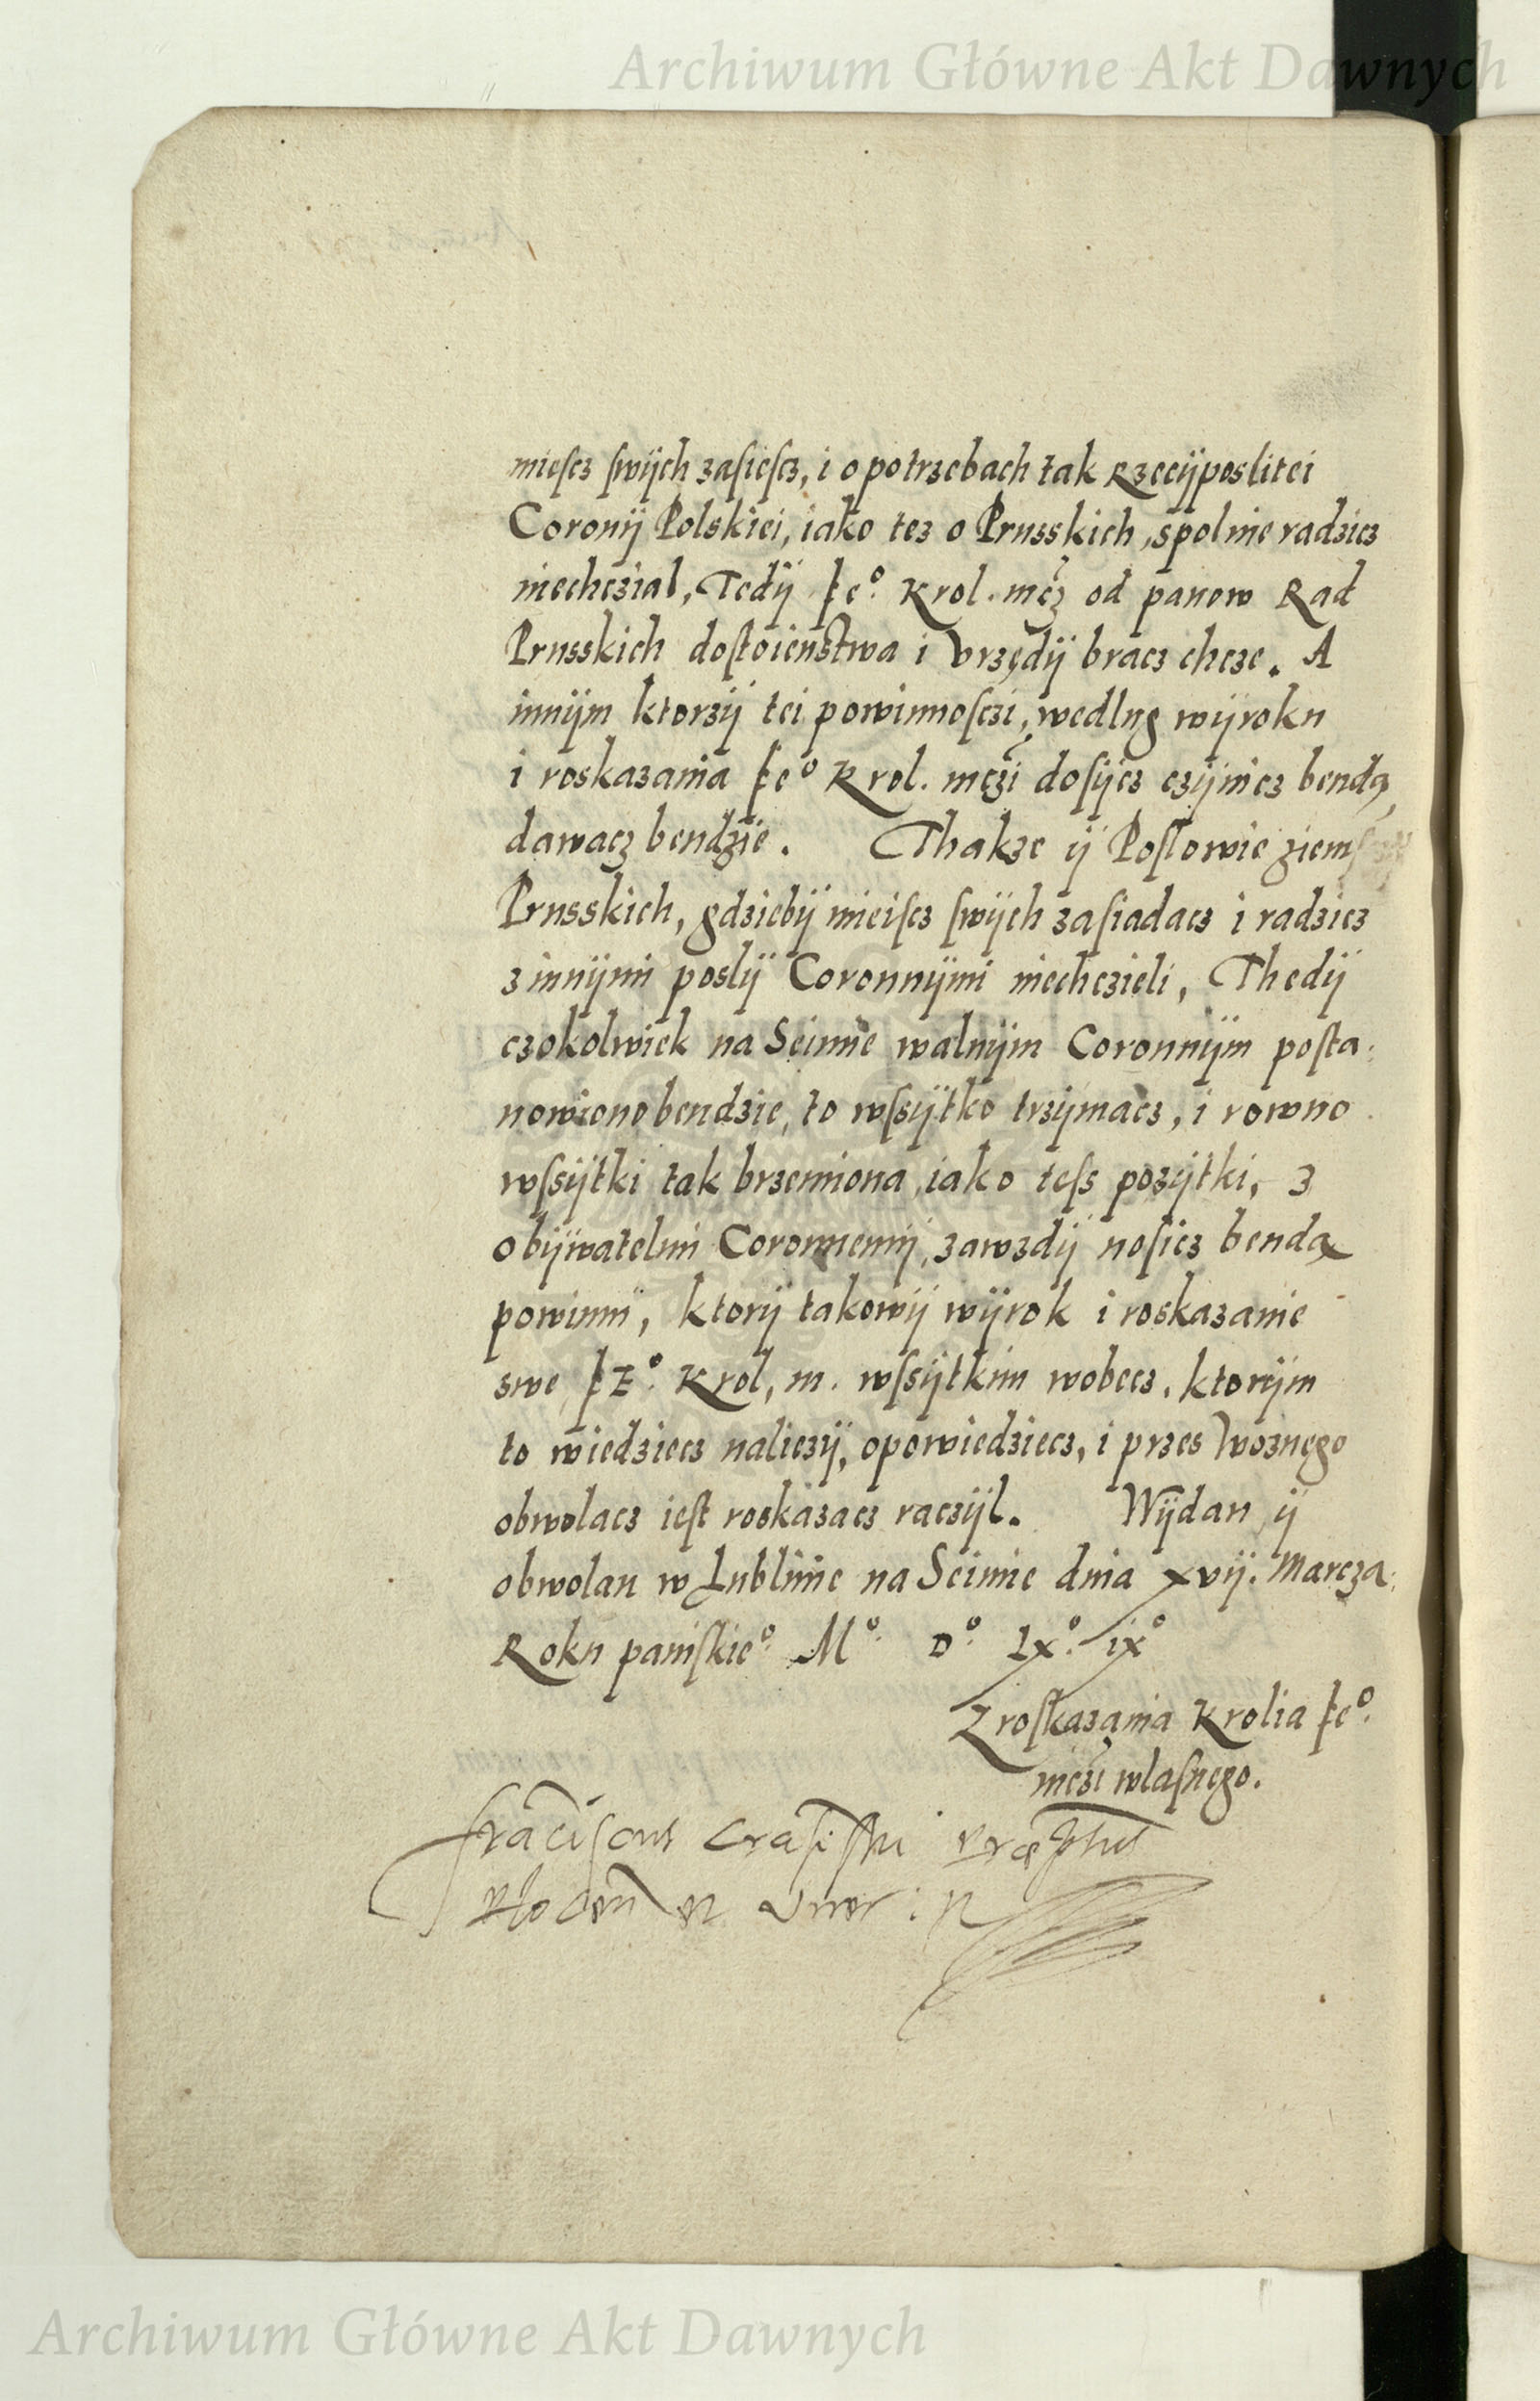 Archiwum Główne Akt Dawnych
miescz swÿch zasiescz, i o potrzebach tak Rzeczÿposlitei
Coronÿ Polskiei, iako tez o Prusskich, spolnie radzicz
niechczial, Tedÿ Ie°. Krol. mcz od panow Rad
Prusskich dostoienstwa i vrzędÿ bracz chcze. A
innÿm ktorzÿ tei powinnosczi, wedlug wÿroku
i roskazania Ie° Krol. mczi dosÿcz czÿnicz bendą,
dawacz bendzie. Thakze ÿ Poslowie ziem
Prusskich, gdziebÿ mieiscz swÿch zasiadacz i radzicz
z innÿmi poslÿ Coronnÿmi niechczieli, Thedÿ
czokolwiek na Seimie walnÿm Coronnÿm posta:
nowiono bendzie, to wssÿtko trzÿmacz, i rowno
wssÿtki tak brzemiona, iako tess pozÿtki, z
obÿwatelmi Coronnemi, zawzdÿ nosicz bendą
powinni, ktorÿ takowÿ wÿrok i roskazanie
swe IE°. Krol, m. wssÿtkim wobecz, ktorÿm
to wiedziecz naliezÿ, opowiedziecz, i przes Woznego
obwolacz iest roskazacz raczÿl. Wÿdan ÿ
obwolan w Lublinie na Seimie dnia xvij. Marcza.
Roku paniskie°. M°. D°. Lx°. ix°
Z roskazania Krolia Ie°.
mczi wlasnego.
Fraciscus Crasiski
Archiwum Główne Akt Dawnych